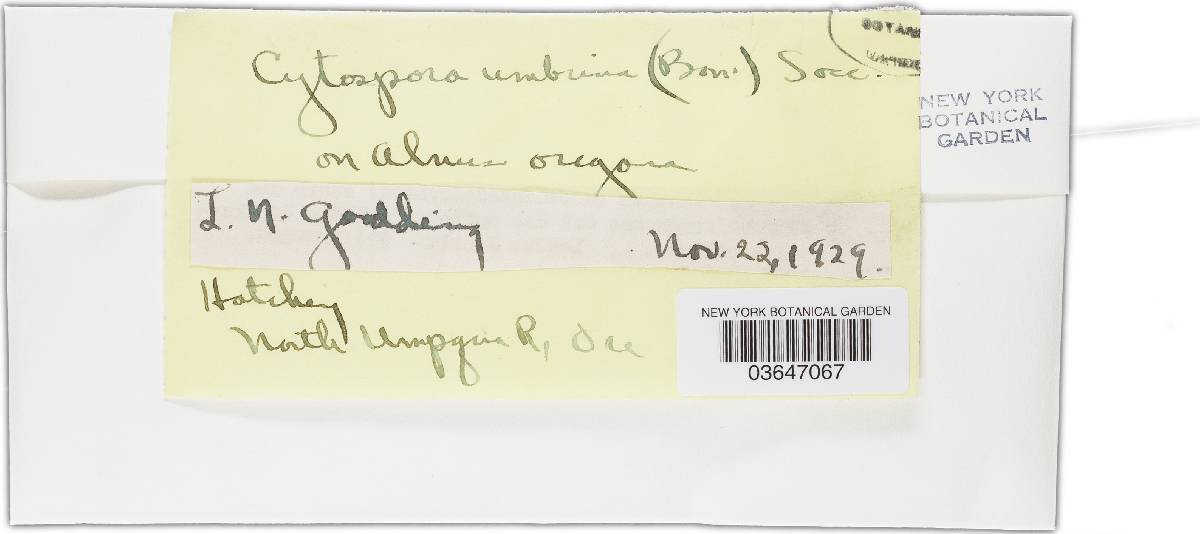 Cytospora umbrina (Bon.) Sacc.
on Alnus oregona
L. N. Goodding Nov. 22, 1929.
North Umpqua R, Ore
NEW YORK
BOTANICAL
GARDEN
NEW YORK BOTANICAL GARDEN
03647067